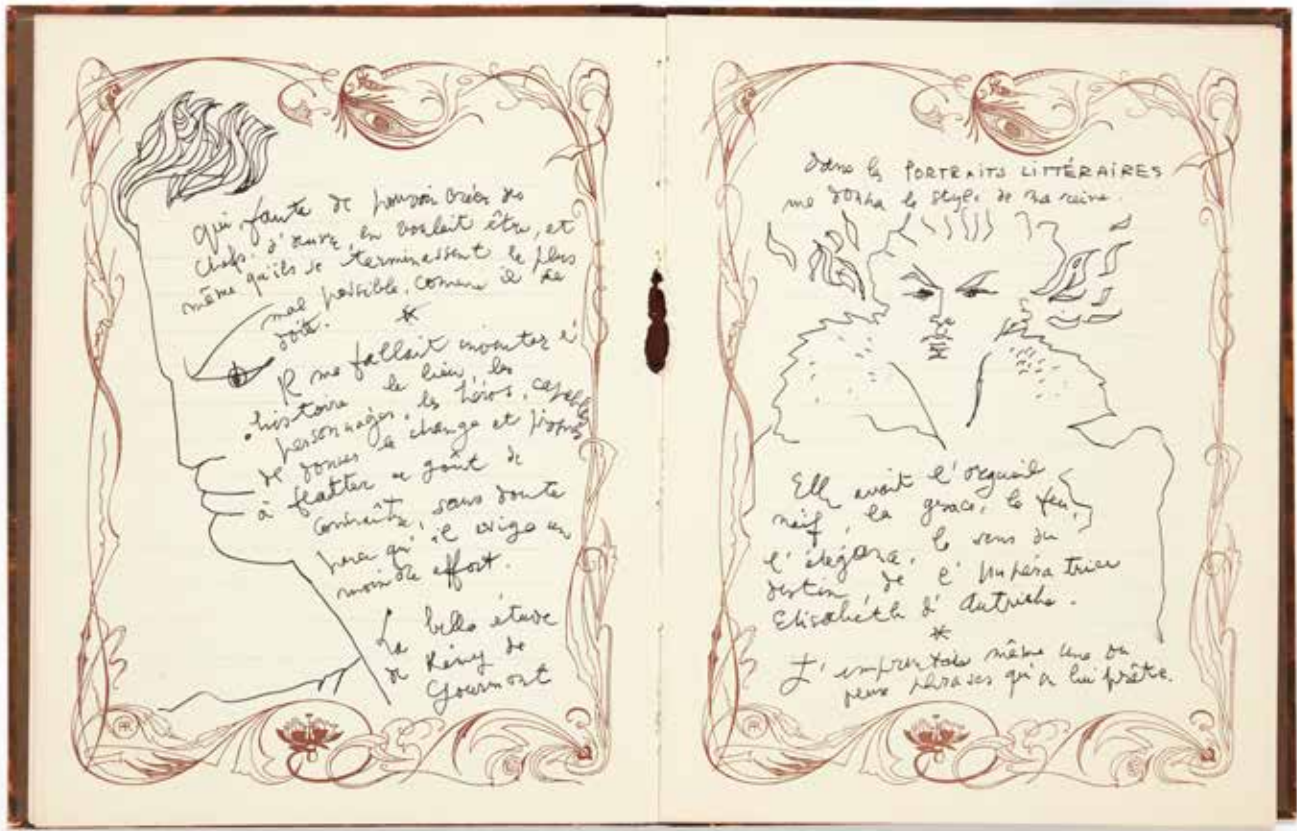 qui faute de pouvoir créer des
chefs-d'œuvre, en voulait être, et
même qu'ils se terminassent le plus
mal possible, comme il se
doit.
*
Il me fallait inventer l'
histoire le lieu, les
personnages, les héros, capables
de donner le change et propres
à flatter ce goût de
connaître, sans doute
parce qu'il exige un
moindre effort.
La belle étude
de Rémy de
Gourmont
Dans les PORTRAITS LITTÉRAIRES
me donna le style de ma reine.
Elle avait l'orgueil
naïf, la grace, le feu,
l'élégance, le sens du
destin, de l'Impératrice
Elisabeth d'Autriche.
*
J'empruntais même une ou
deux phrases qu'on lui prête.